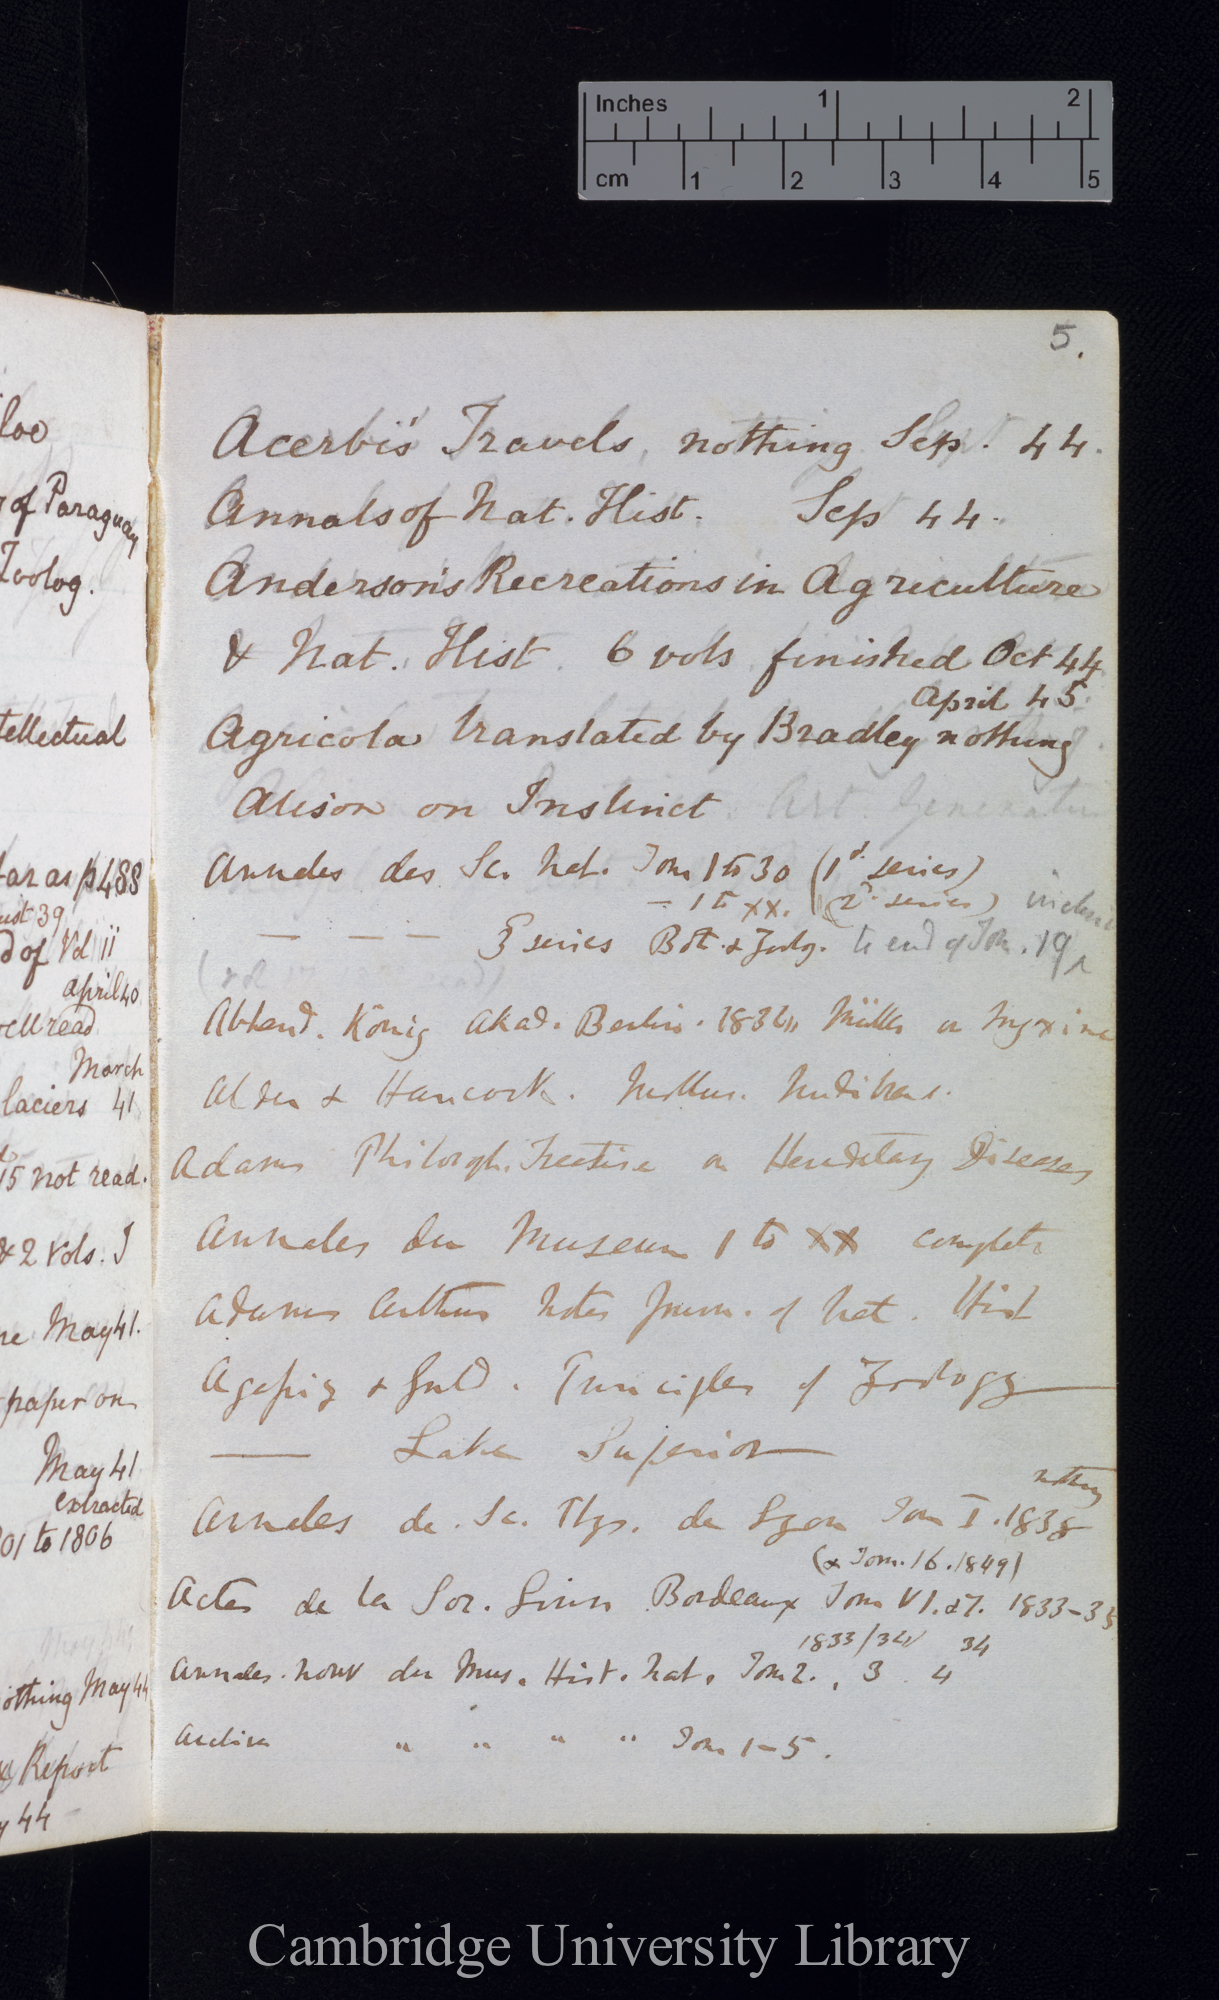 Inches 1 2
cm 1 2 3 4 5
loe
of Paraguay
Zoolog.
tellectual
far as p 488
ust 39
d of Vol ii
april 40
well read
March
laciers 41
15 not read.
& 2 Vols. I
ne May 41.
paper on
May 41
extracted
01 to 1806
othing May 44
Report
y 44
5.
Acerbi's Travels, nothing Sep. 44.
Annals of Nat. Hist. Sep 44.
Anderson's Recreations in Agriculture
& Nat. Hist. 6 vols finished Oct 44
April 45.
Agricola translated by Bradley nothing
Alison on Instinct. Art.
Annales des Sc. Nat. Tom 1 to 30 (1st series)
— 1 to XX. (2d. series)
— — — 3 series Bot. & Zoolog. to end of Tom. 19
Abhand. König Akad. Berlin. 1832, Müller on Myxine
Alder & Hancock. Mollus. Nudibran.
Adams Philosoph. Treatise on Hereditary Diseases
Annales du Museum 1 to XX complete
Adams Arthur Notes from. of Nat. Hist
Agassiz & Guld. Principles of Zoology
— Lake Superior
nothing
Annales de. Sc. Phys. de Lyon Tom I. 1838
(& Tom. 16. 1849)
Actes de la Soc. Linn Bordeaux Tom VI. & 7. 1833-35
1833/34 34
Annales. nouv du Mus. Hist. Nat. Tom 2., 3 4
Archiv " " " " Tom 1-5.
Cambridge University Library